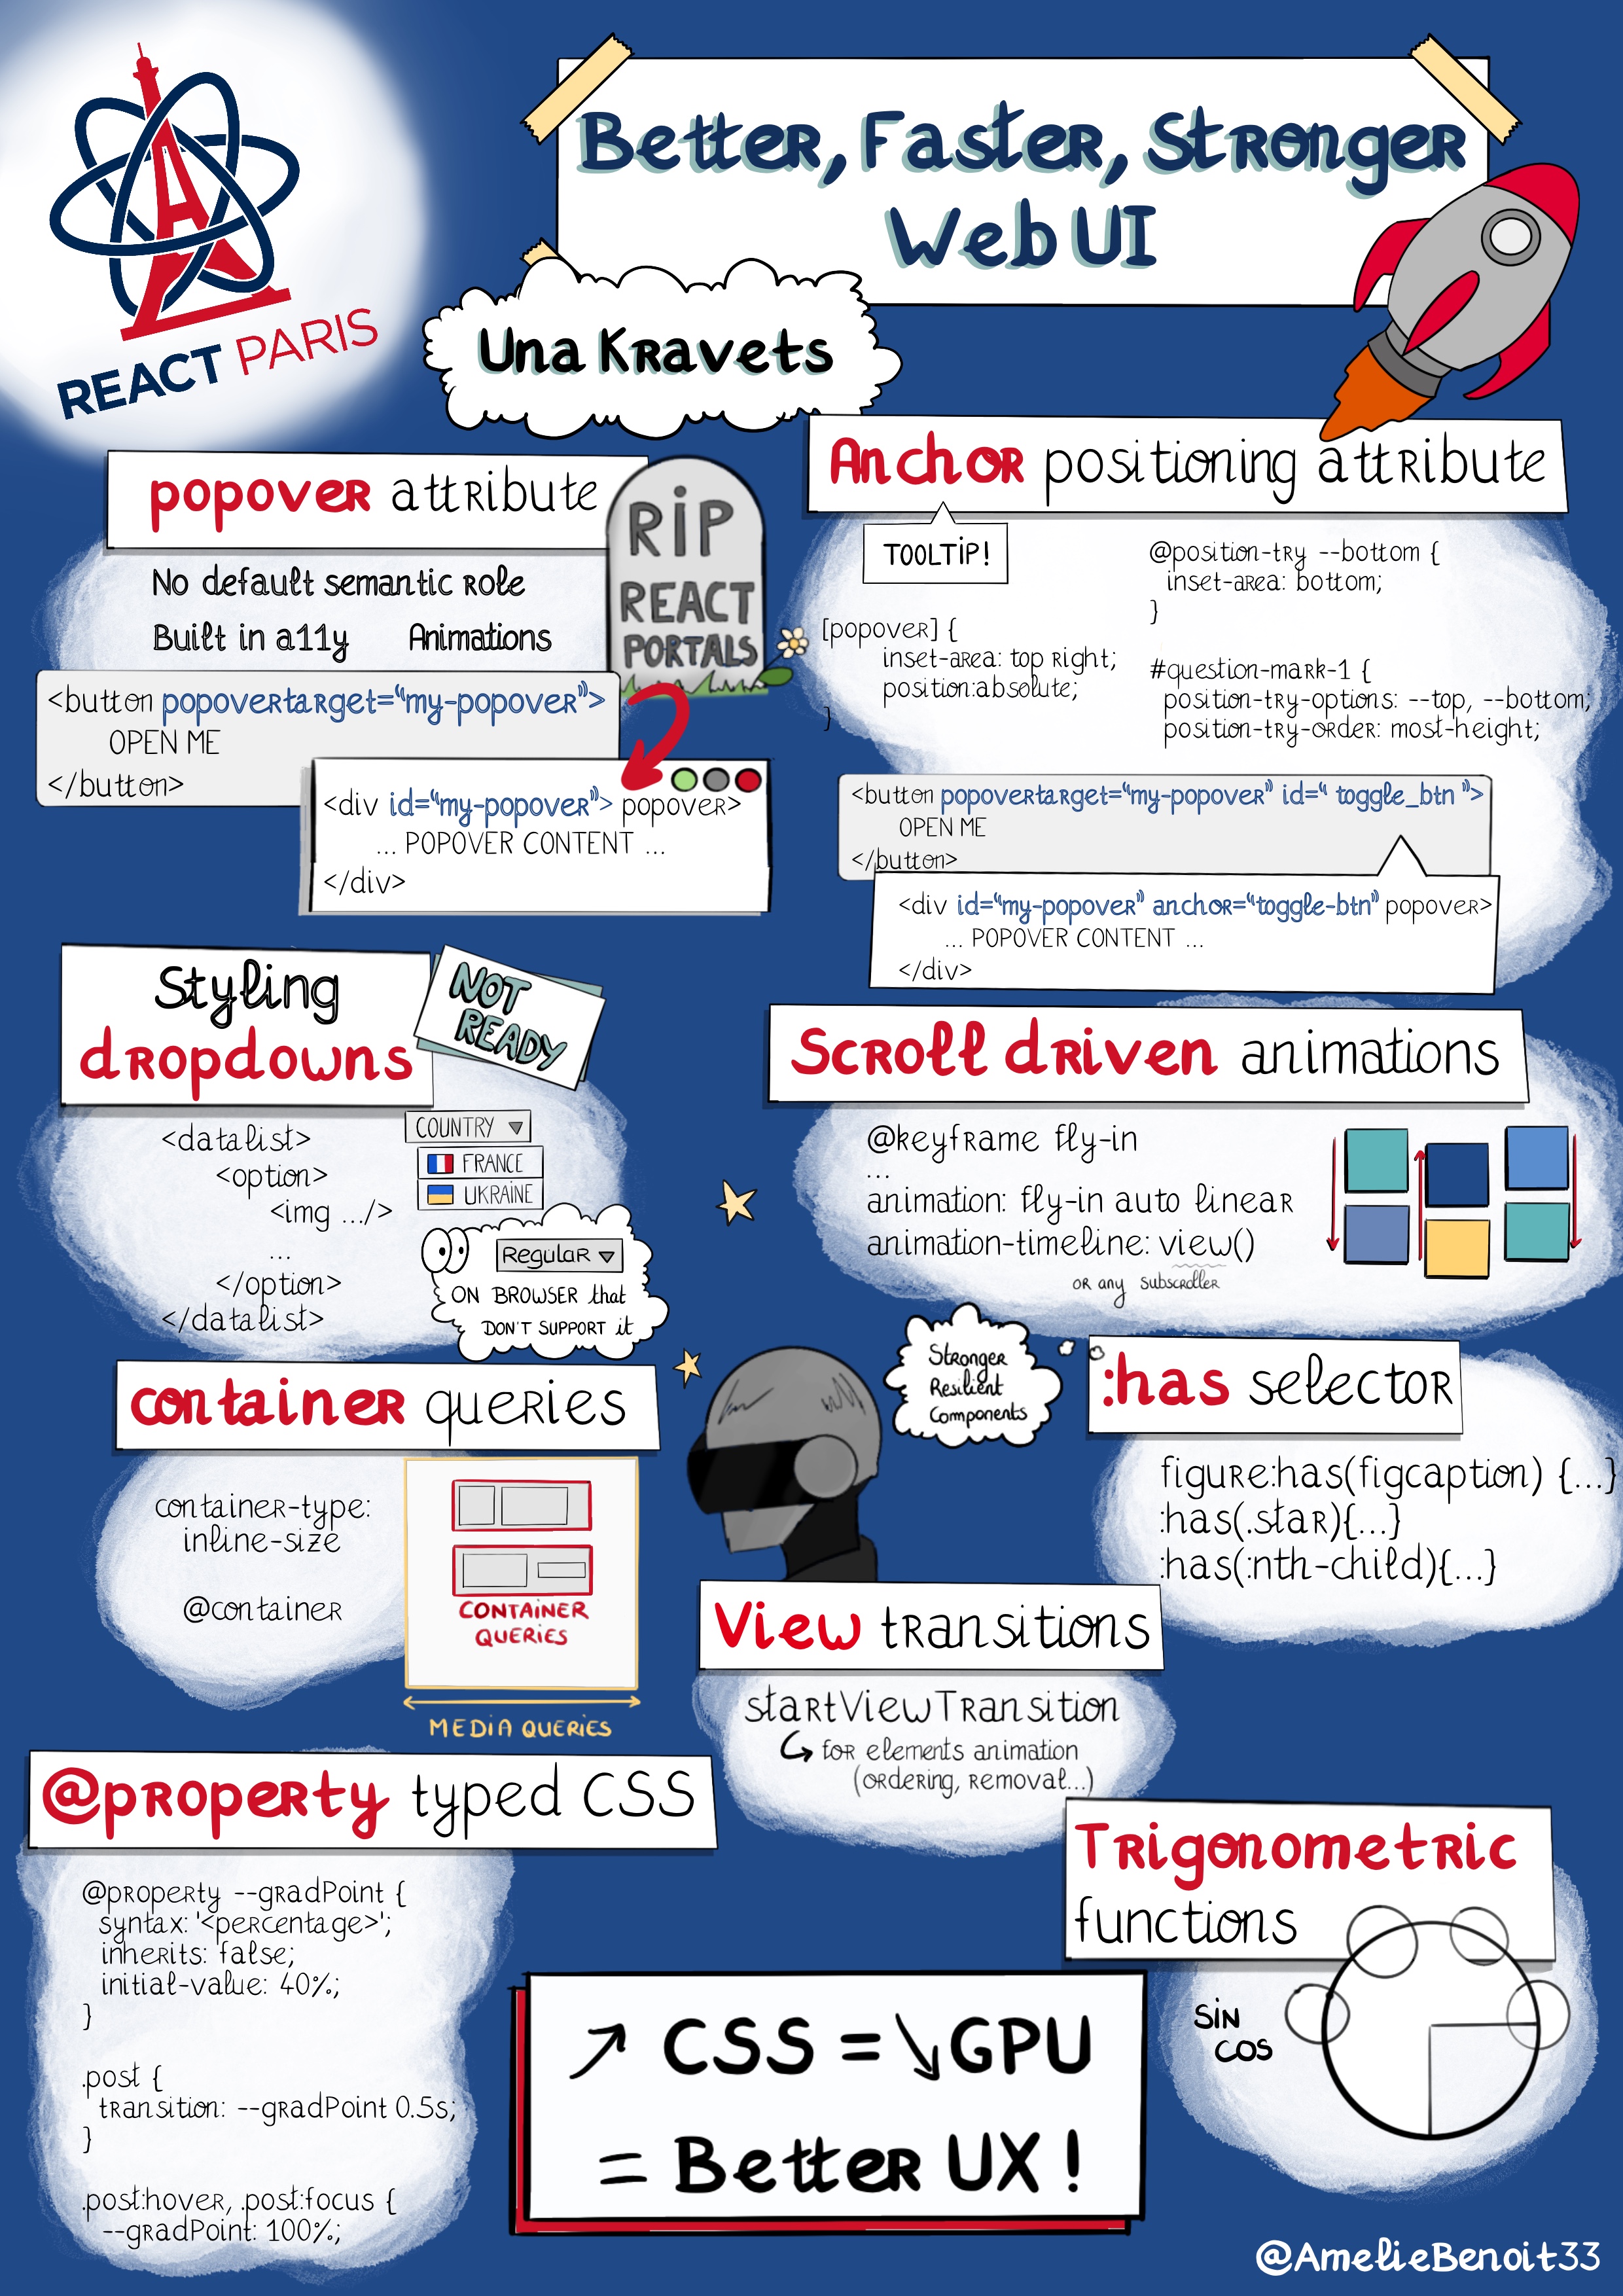 REACT PARIS
Better, Faster, Stronger
Web UI
Una Kravets
popover attribute
RIP
REACT
PORTALS
No default semantic role
Built in a11y Animations
<button popovertarget="my-popover">
OPEN ME
</button>
<div id="my-popover"> popover>
... POPOVER CONTENT ...
</div>
Anchor positioning attribute
TOOLTIP!
[popover] {
inset-area: top right;
position:absolute;
}
@position-try --bottom {
inset-area: bottom;
}
#question-mark-1 {
position-try-options: --top, --bottom;
position-try-order: most-height;
<button popovertarget="my-popover" id=" toggle_btn ">
OPEN ME
</button>
<div id="my-popover" anchor="toggle-btn" popover>
... POPOVER CONTENT ...
</div>
Styling
dropdowns
NOT
READY
<datalist>
<option>
<img .../>
...
</option>
</datalist>
COUNTRY
FRANCE
UKRAINE
Regular
ON BROWSER that
DON'T SUPPORT it
Scroll driven animations
@keyframe fly-in
...
animation: fly-in auto linear
animation-timeline: view()
or any subscroller
container queries
container-type:
inline-size
@container
CONTAINER
QUERIES
MEDIA QUERIES
Stronger
Resilient
Components
:has selector
figure:has(figcaption) {...}
:has(.star){...}
:has(:nth-child){...}
View transitions
startViewTransition
for elements animation
(ordering, removal...)
@property typed CSS
@property --gradPoint {
syntax: '<percentage>';
inherits: false;
initial-value: 40%;
}
.post {
transition: --gradPoint 0.5s;
}
.post:hover, .post:focus {
--gradPoint: 100%;
Trigonometric
functions
SIN
COS
↗ CSS = ↘ GPU
= Better UX !
@AmelieBenoit33